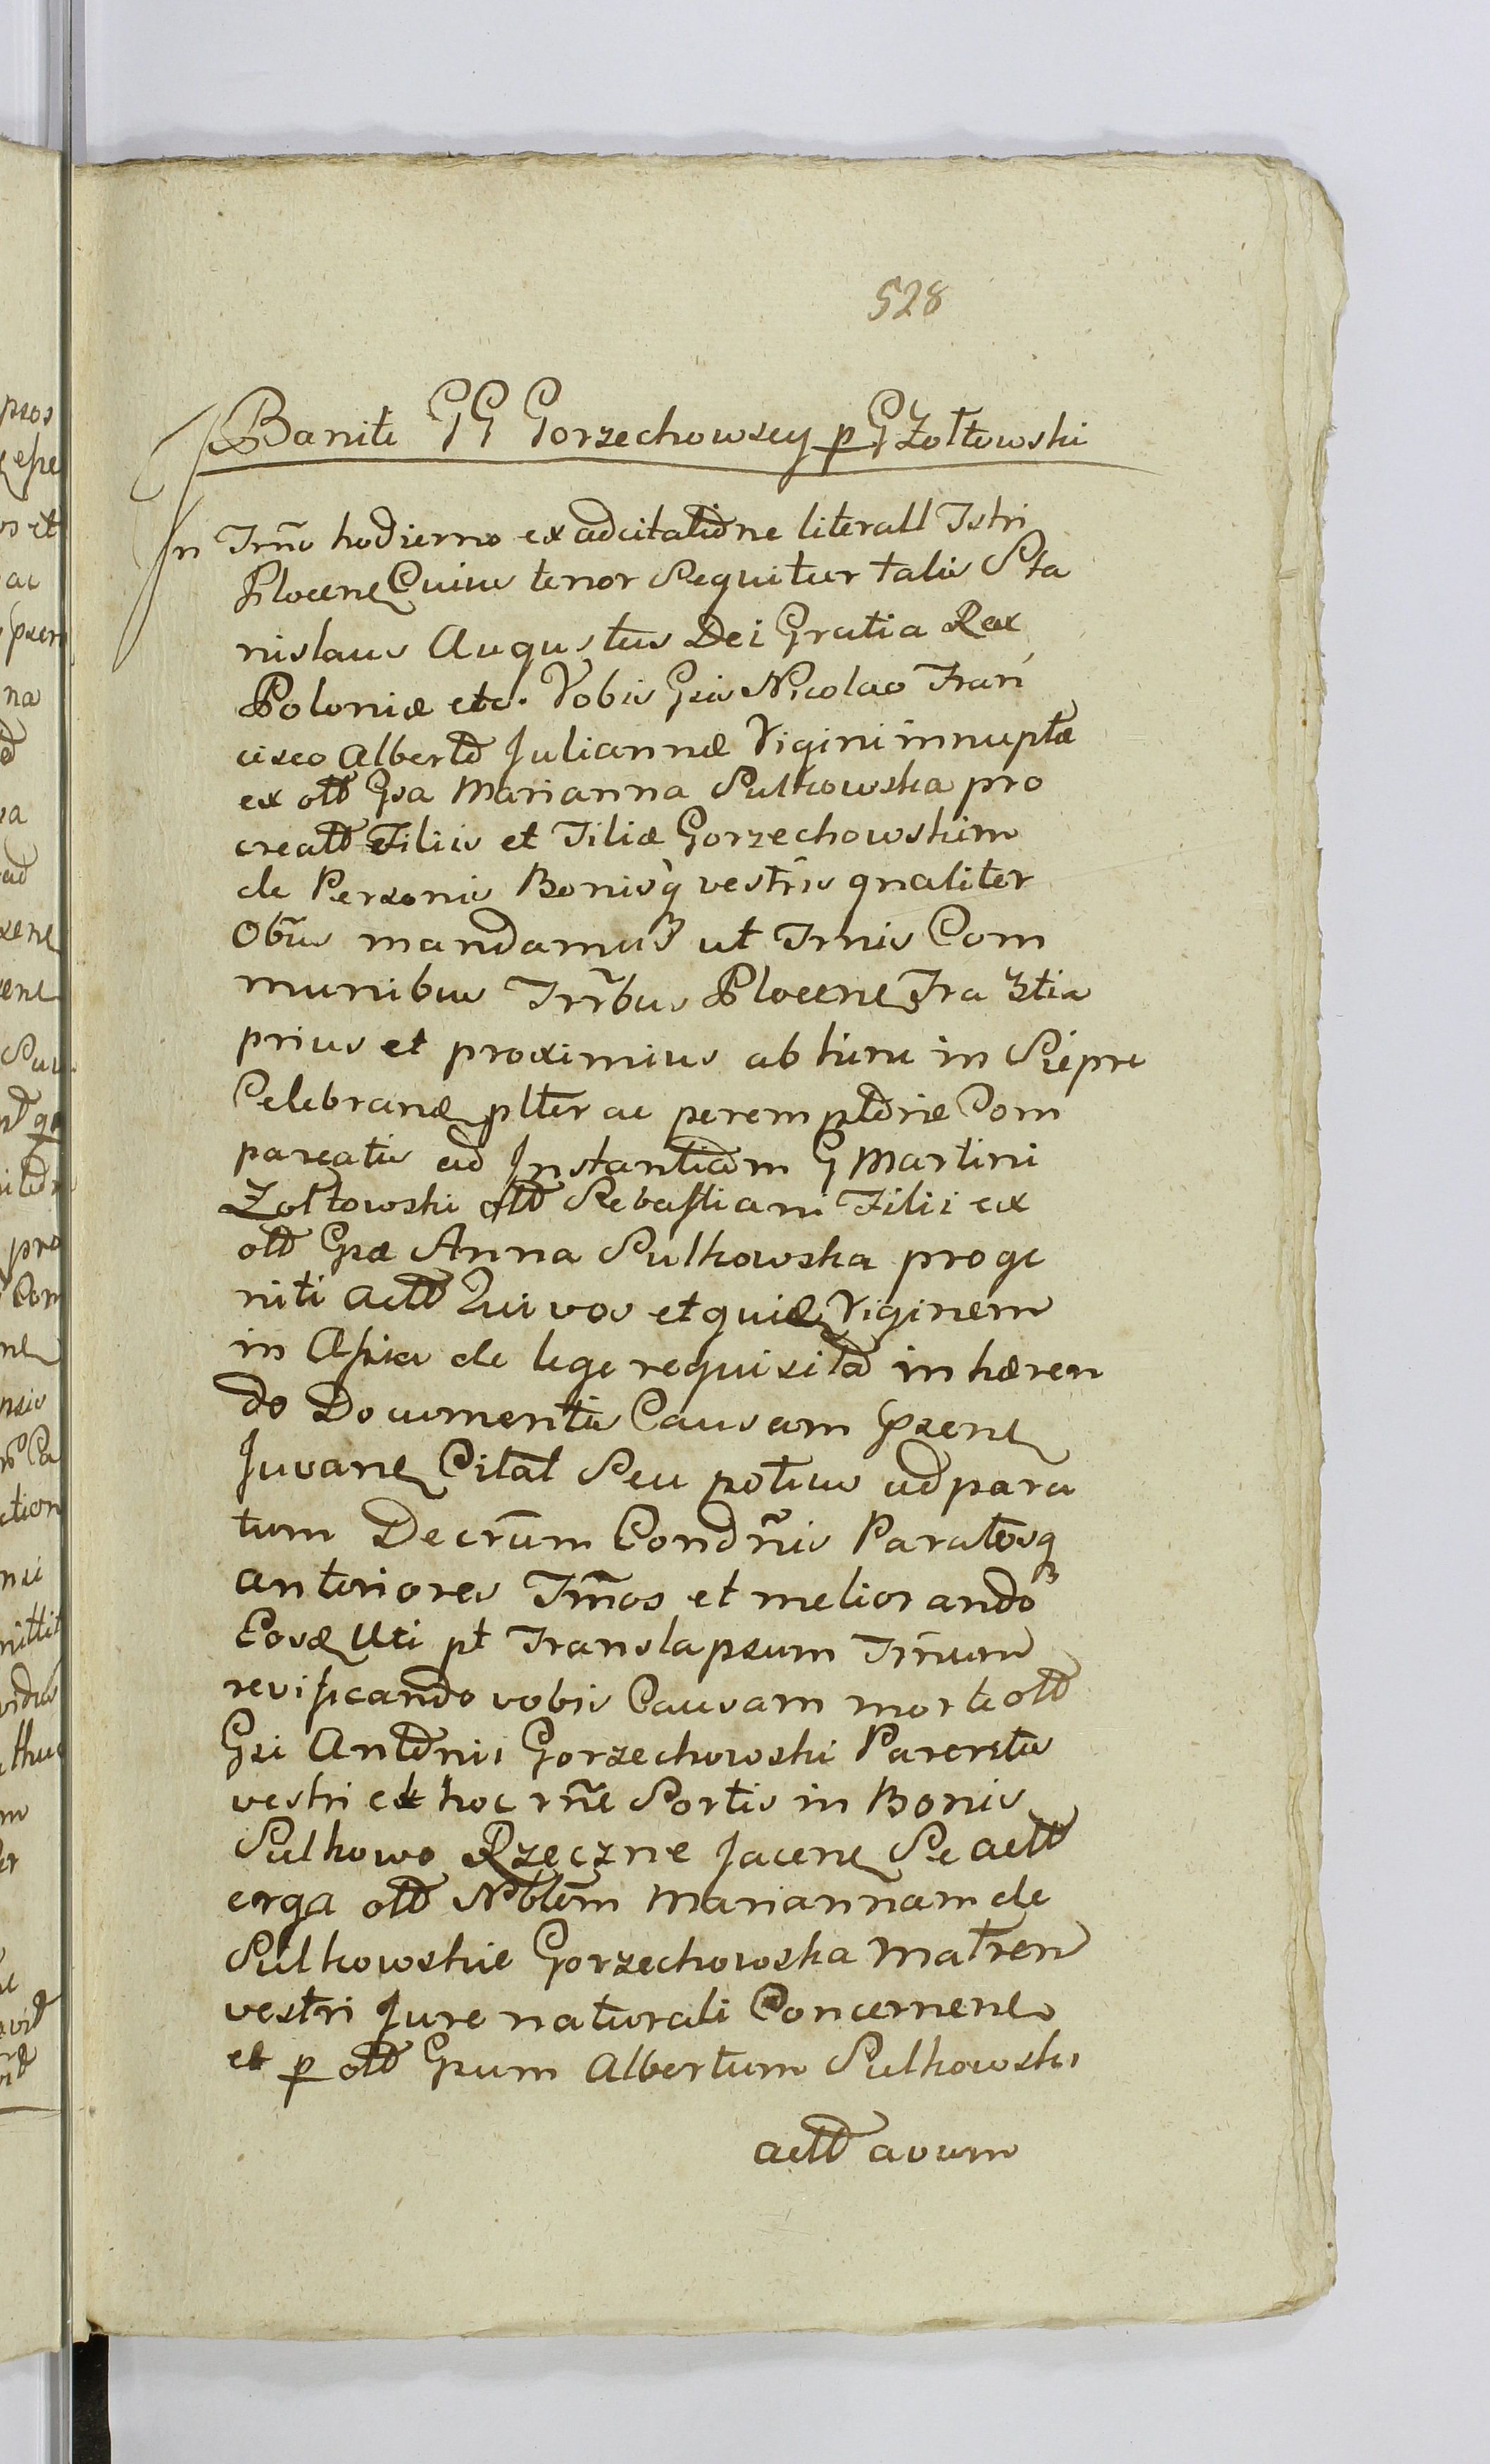 528
Baniti GG Gorzechowscy p G Zołtowski
In Trno hodierno ex adcitatione literall Istri
Plocen Cuius tenor Sequitur talis Sta
nislaus Augustus Dei Gratia Rex
Poloniæ etc. Vobis Gsis Nicolao Fran
cisco Alberto Juliannæ Vigini innuptæ
ex oltt Gsa Marianna Sulkowska pro
creatt Filiis et Filiæ Gorzechowskim
de Personis Bonisq vestris gnaliter
Obus mandamus ut Trnis Com
munibus Trrbus Plocen Tra 3tia
prius et proximius ab hinc in Siepre
Celebran plter ac peremptorie Com
pareatis ad Instantiam G Martini
Zołtowski oltt Sebastiani Filii ex
oltt Gsæ Anna Sulkowska proge
niti actt Qui vos et quid Viginem
in Assia de lege requisita inhæren
do Documentis Causam Gsen
Juvan Citat Seu potius ad para
tum Decrum Condnis Paratosq
anteriores Trnos et meliorando
Eosq Uti pt Translapsum Trnum
revificando vobis Causam morte oltt
Gsi Antonii Gorzechowski Parentis
vestri ex hoc rne Sortis in Bonis
Sulkowo Rzeczne Jacen Se actt
erga oltt Nblem Mariannam de
Sulkowskie Gorzechowska Matrem
vestri Jure naturali Concernen
et p oltt Gsum Albertum Sulkowski
actt avum